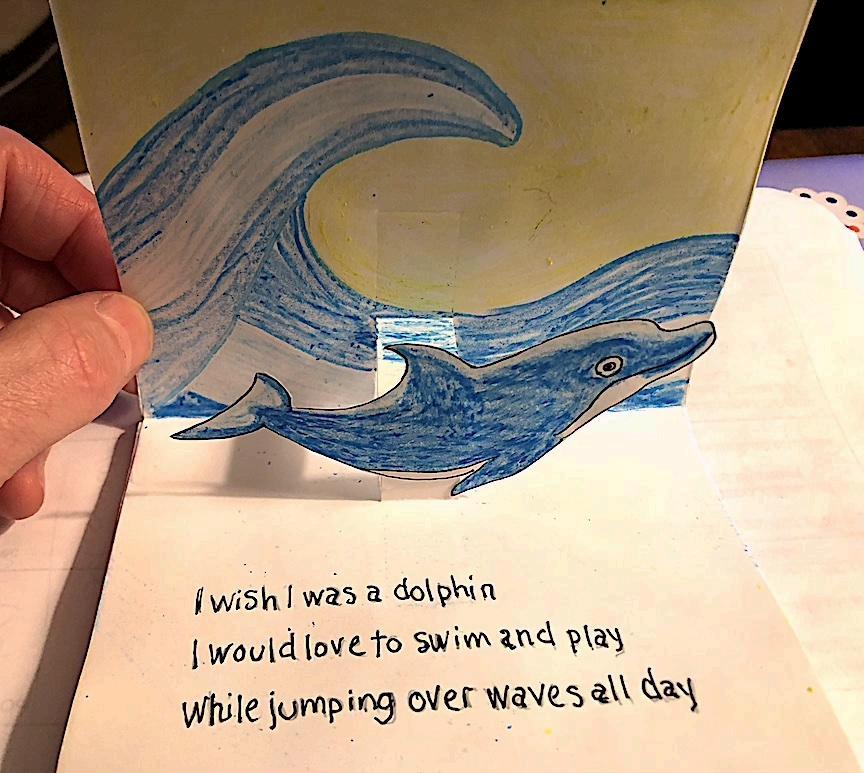 I wish I was a dolphin
I would love to swim and play
While jumping over waves all day